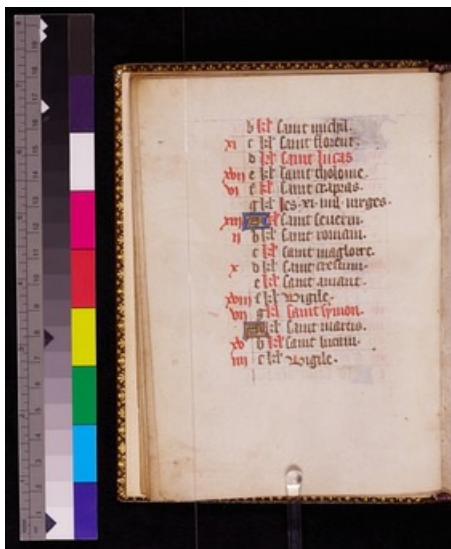 b kl Saint michil.
xi c kl Saint florent.
d kl Saint lucas
xvii e kl Saint
vi f kl Saint crapias.
g kl les. xi. mil. virges.
xiiii A kl Saint seuerin.
ii b kl Saint romain.
c kl Saint magloire.
x d kl Saint crespin.
e kl Saint amant.
xviii f kl Vigile.
vii g kl Saint symon.
A kl Saint
xv b kl Saint lucain.
iiii c kl Vigile.